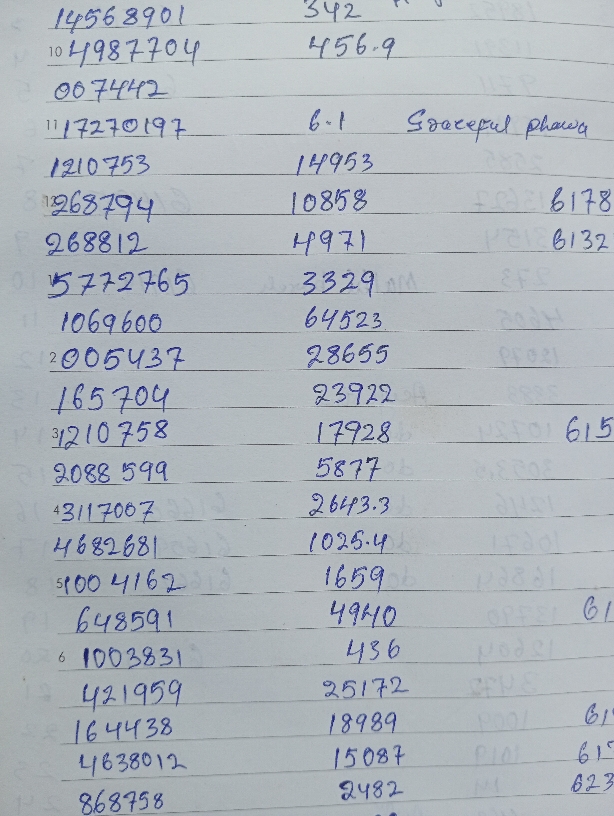 14568901 342
10 4987704 456.9
007442
11 17270197 6.1
1210753 14953
12 268794 10858 6178
268812 4971 6132
5772765 3329
1069600 64523
2 005437 28655
165704 23922
3 1210758 17928 615
2088599 5877
4 3117007 2643.3
4682681 1025.4
5 1004162 1659
648591 4940 61
6 1003831 436
421959 25172
164438 18989 61
4638012 15087 617
868758 2482 623